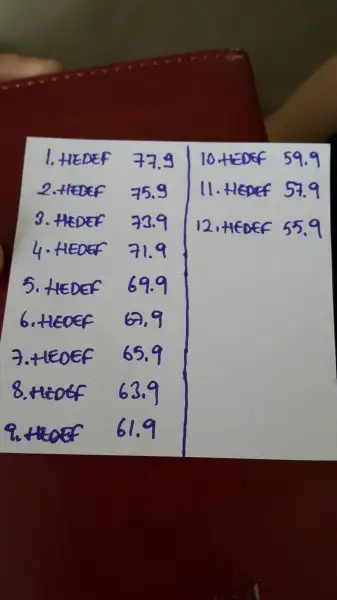 1. HEDEF 77.9
2. HEDEF 75.9
3. HEDEF 73.9
4. HEDEF 71.9
5. HEDEF 69.9
6. HEDEF 67.9
7. HEDEF 65.9
8. HEDEF 63.9
9. HEDEF 61.9
10. HEDEF 59.9
11. HEDEF 57.9
12. HEDEF 55.9